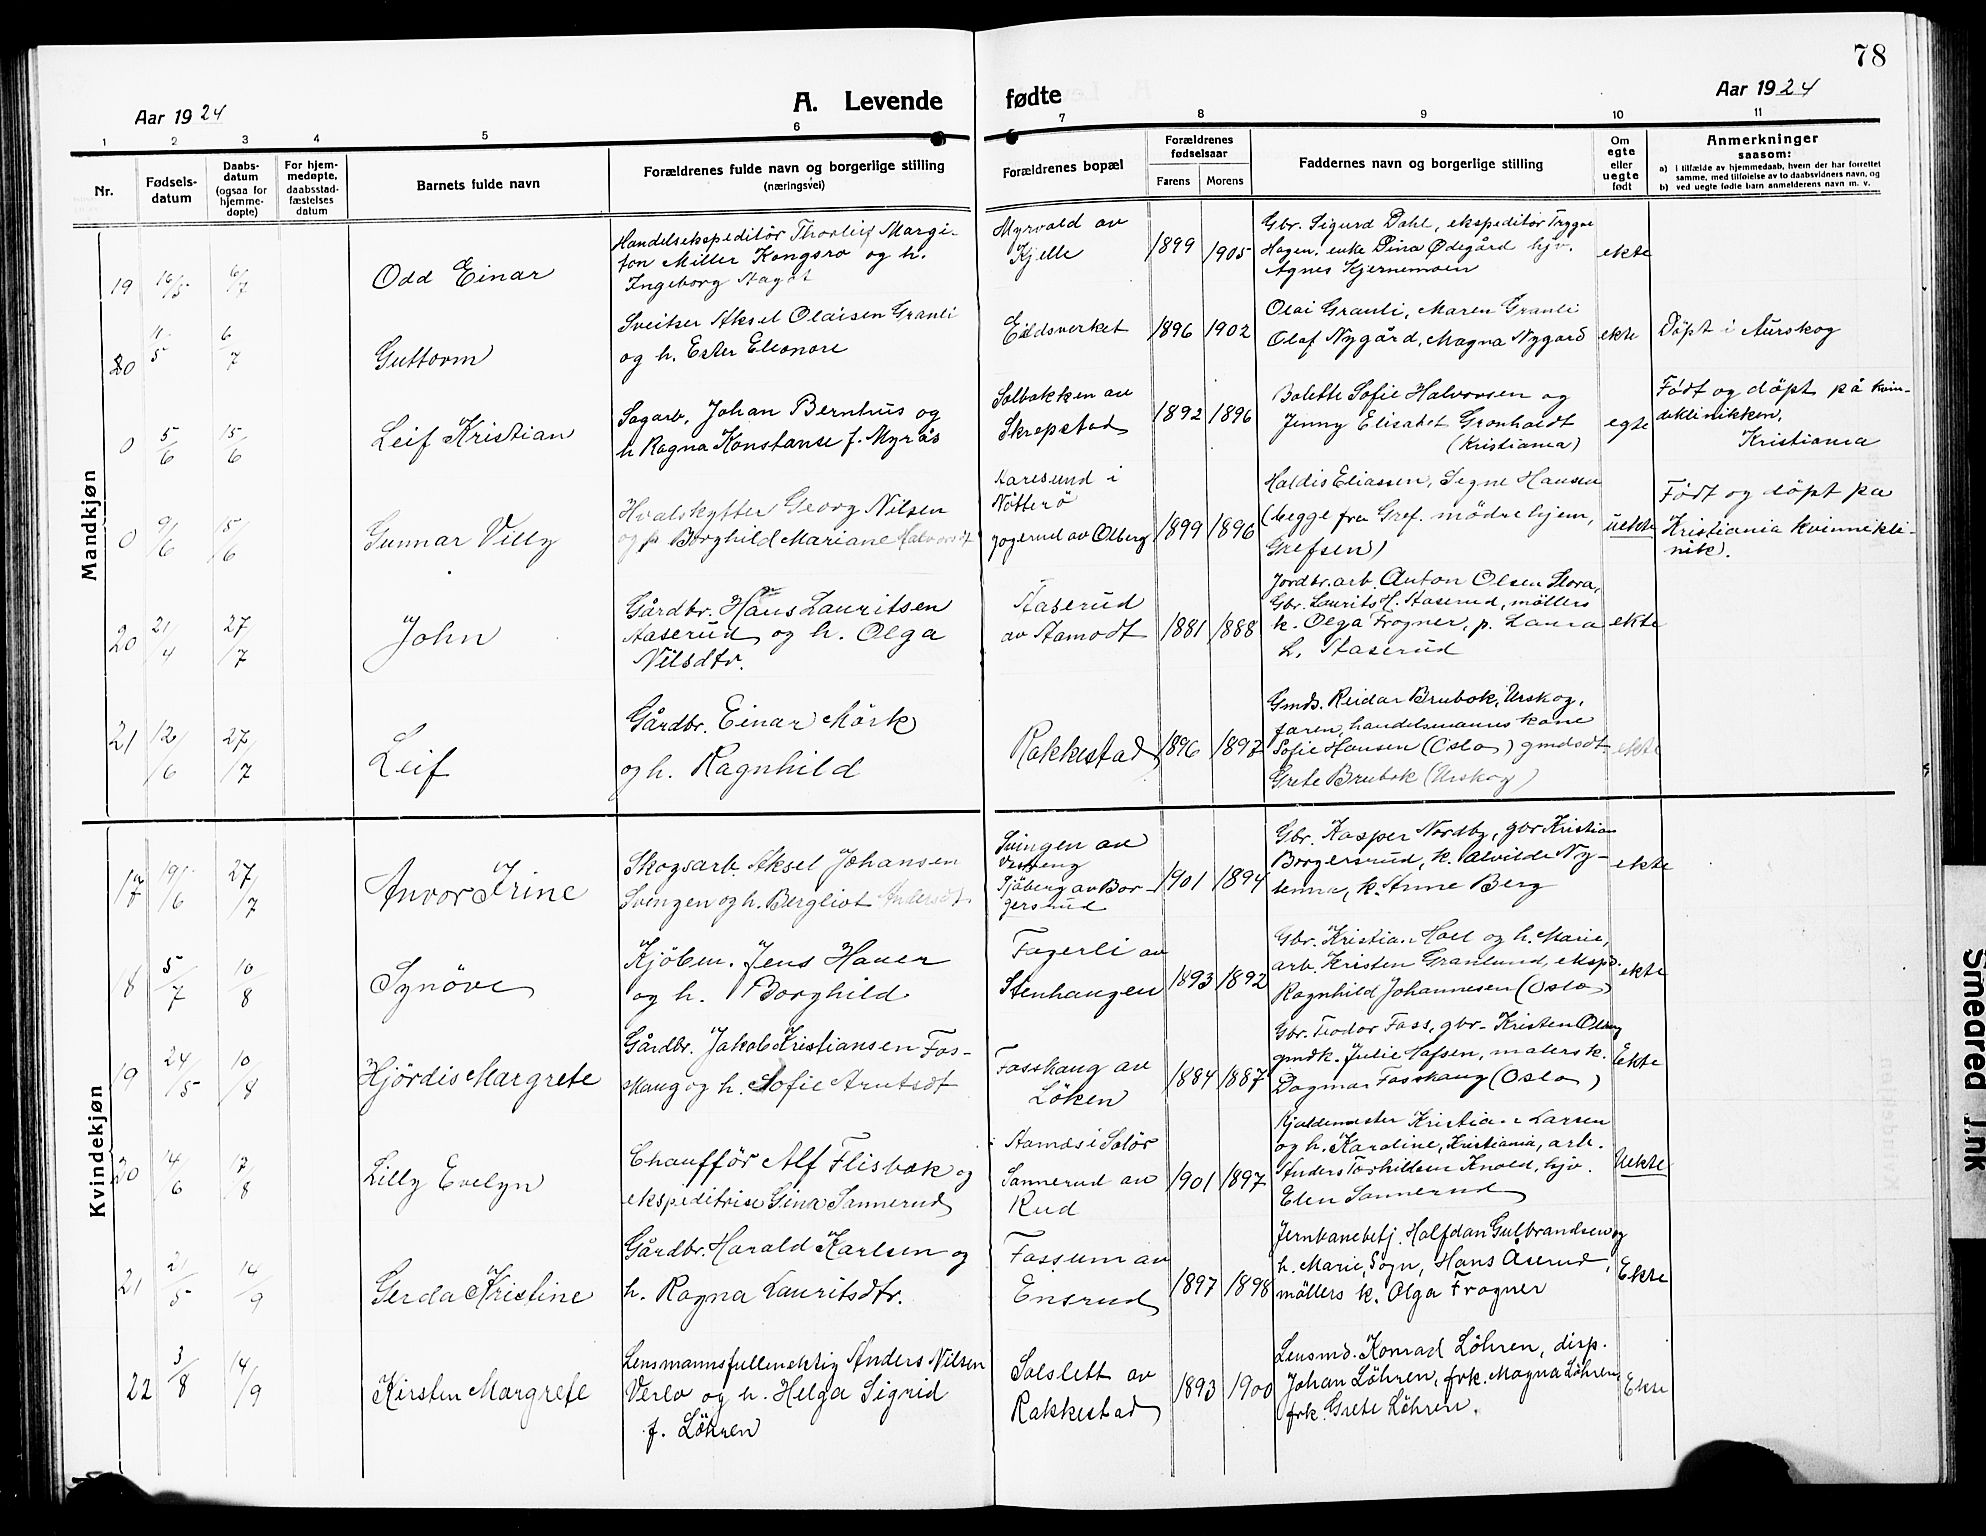 78
Aar 1924
A. Levende fødte
Aar 1924
1 2 3 4 5 6 7 8 9 10 11
Nr.
Fødsels-
datum
Daabs-
datum
(ogsaa for
hjemme-
døpte)
For hjem-
medøpte,
daabsstad-
fæstelses
datum
Barnets fulde navn
Forældrenes fulde navn og borgerlige stilling
(næringsvei)
Forældrenes bopæl
Forældrenes
fødselsaar
Farens Morens
Faddernes navn og borgerlige stilling
Om
egte
eller
uegte
født
Anmerkninger
saasom:
a) i tilfælde av hjemmedaab, hvem der har forrettet
samme, med tilføielse av to daabsvidners navn, og
b) ved uegte fødte barn anmelderens navn m. v.
Mandkjøn
19 16/5 6/7 Odd Einar
Handelsekspeditör Margi-
ton Miller Kongsro og h.
Ingeborg
Myrvold av
Kjelle
1899 1905
Gbr. Sigurd Dahl, ekspeditör Trygve
Hagen, enke Dina Ødegård hjv.
Agnes Kjernemoen
ekte
20 4/5 6/7 Guttorm
Sveitser Aksel Olaisen Granli
og h. Ester Eleonore
Eidsverket
1896 1902
Olai Granli, Maren Granli
Olaf Nygård, Magna Nygård
ekte
Döpt i Aurskog
0 5/6 15/6 Leif Kristian
Sagarb. Johan Bernhus og
h Ragna Konstanse f. Myrås
Solbakken av
Skrepstad
1892 1896
Bolette Sofie Halvorsen og
Jenny Elisabet Gronholdt
(Kristiania)
egte
Født og döpt på kvin-
deklinikken,
Kristiania
0 9/6 15/6 Gunnar Villy
Hvalskytter Georg Nilsen
og p Borghild Mariane Halvorsdt
Karesund i
Nötterö
gogerud av Olberg
1899 1896
Haldis Eliassen, Signe Hansen
(begge fra Gref. mödrehjem,
Grefsen)
uekte
Født og döpt pa
Kristiania kvinnekli-
nik).
20 21/4 27/7 John
Gårdbr. Hans Lauritsen
Staserud og h. Olga
Nilsdtr.
Staserud
av Hamodt
1881 1888
Jordbr.arb. Anton Olsen Hora,
Gbr. Laurits H. Staserud, möllers
k. Olga Frogner, p. Laura
L. Staserud
ekte
21 12/6 27/7 Leif
Gårdbr. Einar Mörk
og h. Ragnhild
Rakkestad
1896 1897
Gmds. Reidar Brubok, Urskog,
faren, handelsmanns kone
Sofie Hansen (Oslo) gmdsdt.
Grete Brubok (Urskog)
ekte
Kvindekjøn
17 19/6 27/7 Anvor Irine
Skogsarb. Aksel Johansen
Svingen og h. Bergliot Andersdt.
Svingen av
Vestreng
Sjöberg av Bor-
gersrud
1901 1894
Gbr. Kasper Nordby, gbr Kristian
Borgersrud, k. Valvilde Ny-
tenna, k. Anne Berg
ekte
18 5/7 10/8 Synöve
Kjöbm. Jens Haner
og h. Borghild
Fagerli av
Stenhaugen
1893 1892
Gbr. Kristian Holl og h. Marie,
arb. Kristen Granlund, eksp.
Ragnhild Johannesen (Oslo)
ekte
19 24/5 10/8 Hjördis Margrete
Gårdbr. Jakob Kristiansen Fos-
skaug og h. Sofie Arntsdt
Fosskaug av
Löken
1884 1887
Gbr. Teodor Foss, gbr. Kristen Olberg
gmdk. Julie Hafsen, malers k.
Dagmar Fosskaug (Oslo)
Ekte
20 14/6 17/8 Lilly Evelyn
Chaufför Alf Flisbak og
ekspeditrise Gina Sannerud
Hamos i Solör
Sannerud av
Rud
1901 1897
Kristian Larsen
og h. Karoline, Kristiania, arb.
Anders Torkildsen Knold, hjv.
Elen Sannerud
Uekte
21 21/5 14/9 Gerda Kristine
Gårdbr. Harald Karlsen og
h. Ragna Lauritsdtr.
Fossum av
Ensrud
1897 1898
Jernbanebetj. Halfdan Gulbrandsen og
h. Marie, Sogn, Hans Åserud,
möllers k. Olga Frogner
Ekte
22 3/8 14/9 Kirsten Margrete
Lensmannsfullmektig Anders Nilsen
Verlo og h. Helga Sigrid
f. Löhren
Solslett av
Rakkestad
1893 1900
Lensmd. Konrad Löhren, disp.
Johan Löhren, frk. Magna Löhren,
frk. Grete Löhren.
Ekte
Smeared Ink